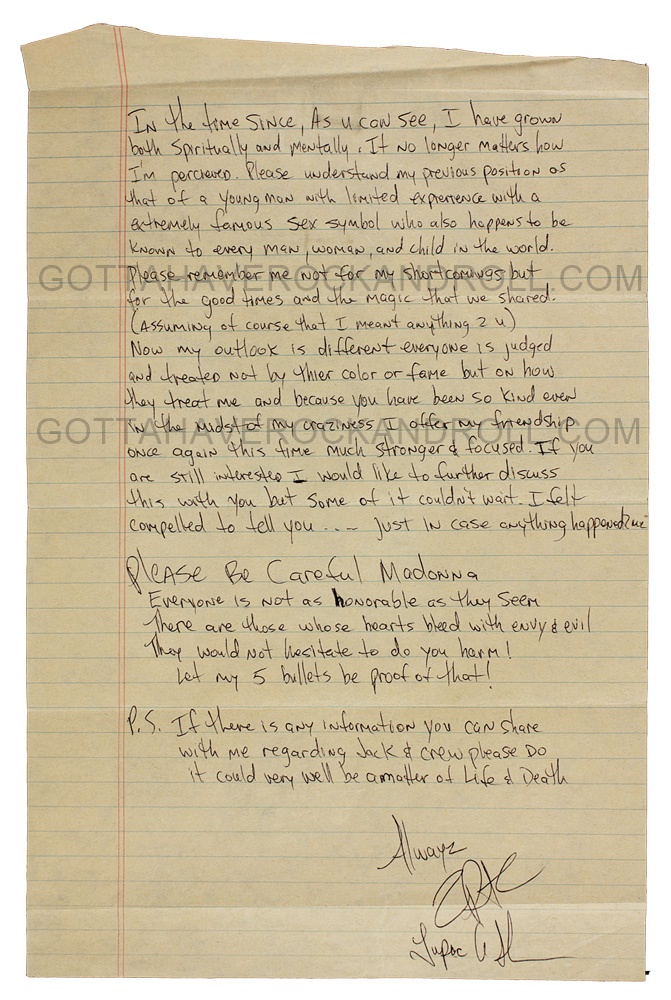 In the time since, As u can see, I have grown
both spiritually and mentally. It no longer matters how
I'm percieved. Please understand my previous position as
that of a young man with limited experience with a
extremely famous sex symbol who also happens to be
known to every man, woman, and child in the world.
Please remember me not for my shortcomings but
GOTTAHAVEROCKANDROLL.COM
for the good times and the magic that we shared.
(Assuming of course that I meant anything 2 u)
Now my outlook is different everyone is judged
and treated not by thier color or fame but on how
they treat me and because you have been so kind even
in the midst of my craziness I offer my friendship
GOTTAHAVEROCKANDROLL.COM
once again this time much stronger & focused. If you
are still interested I would like to further discuss
this with you but some of it couldn't wait. I felt
compelled to tell you .... just in case anything happened 2 me
Please Be Careful Madonna
Everyone is not as honorable as they seem
There are those whose hearts bleed with envy & evil
They would not hesitate to do you harm!
Let my 5 bullets be proof of that!
P.S. If there is any information you can share
with me regarding Jack & crew please Do
it could very well be a matter of Life & Death
Always
Tupac A S